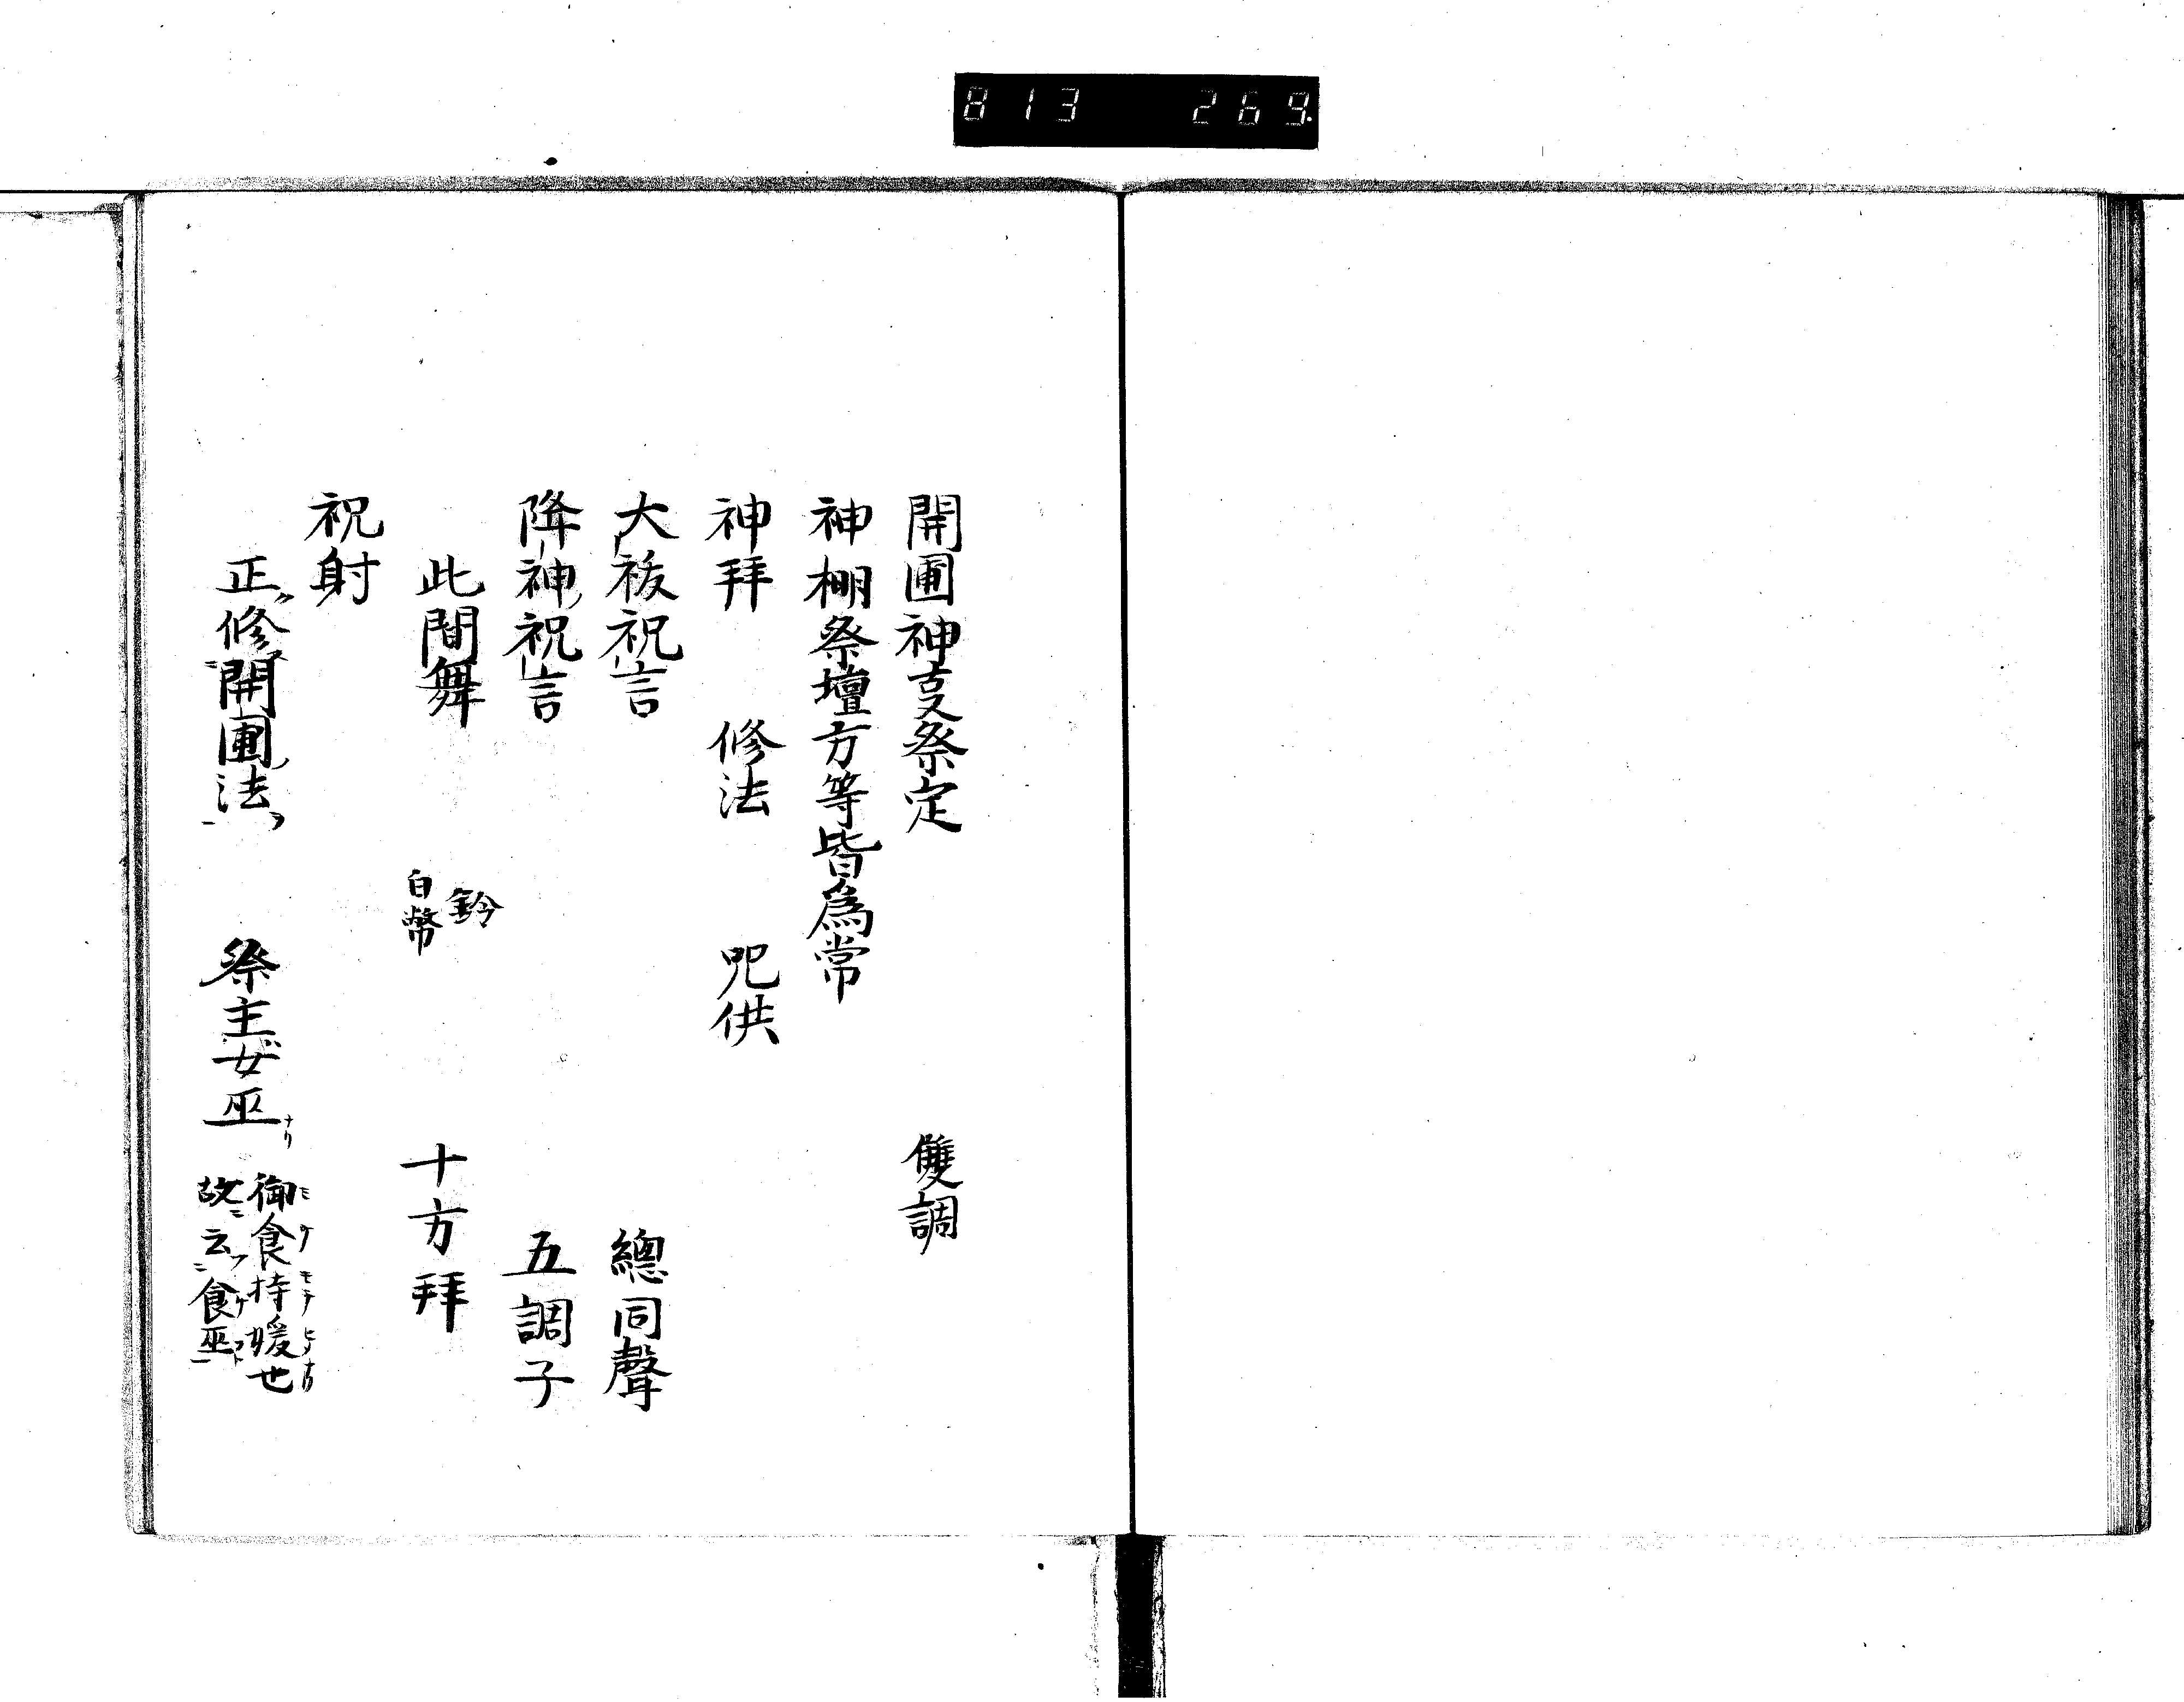 813 269
開圃神㕝祭定 雙調
神棚祭壇方等皆為常
神拜 修法 呪供
大祓祝言 總同聲
降神祝言 五調子
此間舞 鈴 白幣 十方拜
祝射
正修開圃法 祭主女巫ナリ
御食持媛也
故云食巫